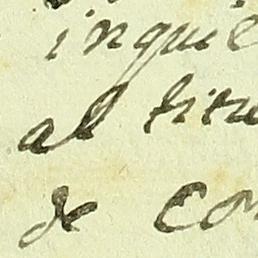 inquil
al titu
de con